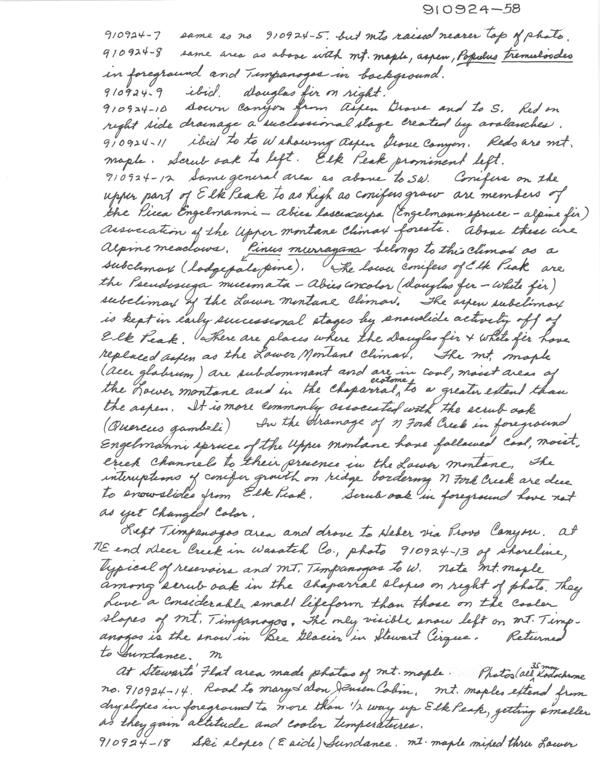 910924-58
910924-7 same as no 910924-5. but mts raised nearer top of photo.
910924-8 same area as above with mt. maple, aspen, Populus tremuloides
in foreground and Timpanogos in background.
910924-9 ibid. Douglas fir on right.
910924-10 Down canyon from Aspen Grove and to S. Red on
right side drainage a successional stage created by avalanches.
910924-11 ibid to to W showing Aspen Grove Canyon. Reds are mt.
maple. Scrub oak to left. Elk Peak prominent left.
910924-12 Same general area as above to SW. Conifers on the
upper part of Elk Peak to as high as conifers grow are members of
the Picea Engelmanni - Abies lasiocarpa (Engelmann spruce - alpine fir)
Association of the Upper montane Climax forests. Above these are
Alpine meadows. Pinus murrayana belongs to this climax as a
subclimax (lodgepole pine). The lower conifers of Elk Peak are
the Pseudosuga mucronata - Abies concolor (Douglas fir - White fir)
subclimax of the Lower montane Climax. The aspen subclimax
is kept in early successional stages by snowslide activity off of
Elk Peak. There are places where the Douglas fir + White fir have
replaced aspen as the Lower Montane Climax. The mt. maple
(acer glabrum) are subdominant and are in cool, moist areas of
the Lower montane and in the chaparral ecotome to a greater extent than
the aspen. It is more commonly associated with the scrub oak
(Quercus gambeli) In the drainage of N Fork Creek in foreground
Engelmanni spruce of the Upper montane have followed cool, moist,
creek channels to their presence in the Lower montane. The
interuptions of conifer growth on ridge bordering N Fork Creek are due
to snowslides from Elk Peak. Scrub oak in foreground have not
as yet changed color.
Left Timpanogos area and drove to Heber via Provo Canyon. At
NE end Deer Creek in Wasatch Co., photo 910924-13 of shoreline,
typical of resevoirs and MT. Timpanogos to W. Note Mt. maple
among scrub oak in the chaparral slopes on right of photo. They
have a considerable small lifeform than those on the cooler
slopes of Mt. Timpanogos. The only visible snow left on mt. Timp-
anogos is the snow in Bee Glacier in Stewart Cirque. Returned
to Sundance.
At Stewarts' Flat area made photos of mt. maple. Photos (all 35 mm Kodachrome
no. 910924-14. Road to Mary & Don Jensen Cabin. Mt. maples extend from
dry slopes in foreground to more than 1/2 way up Elk Peak, getting smaller
as they gain altitude and cooler temperatures.
910924-18 Ski slopes (E side) Sundance. mt. maple mixed thru Lower